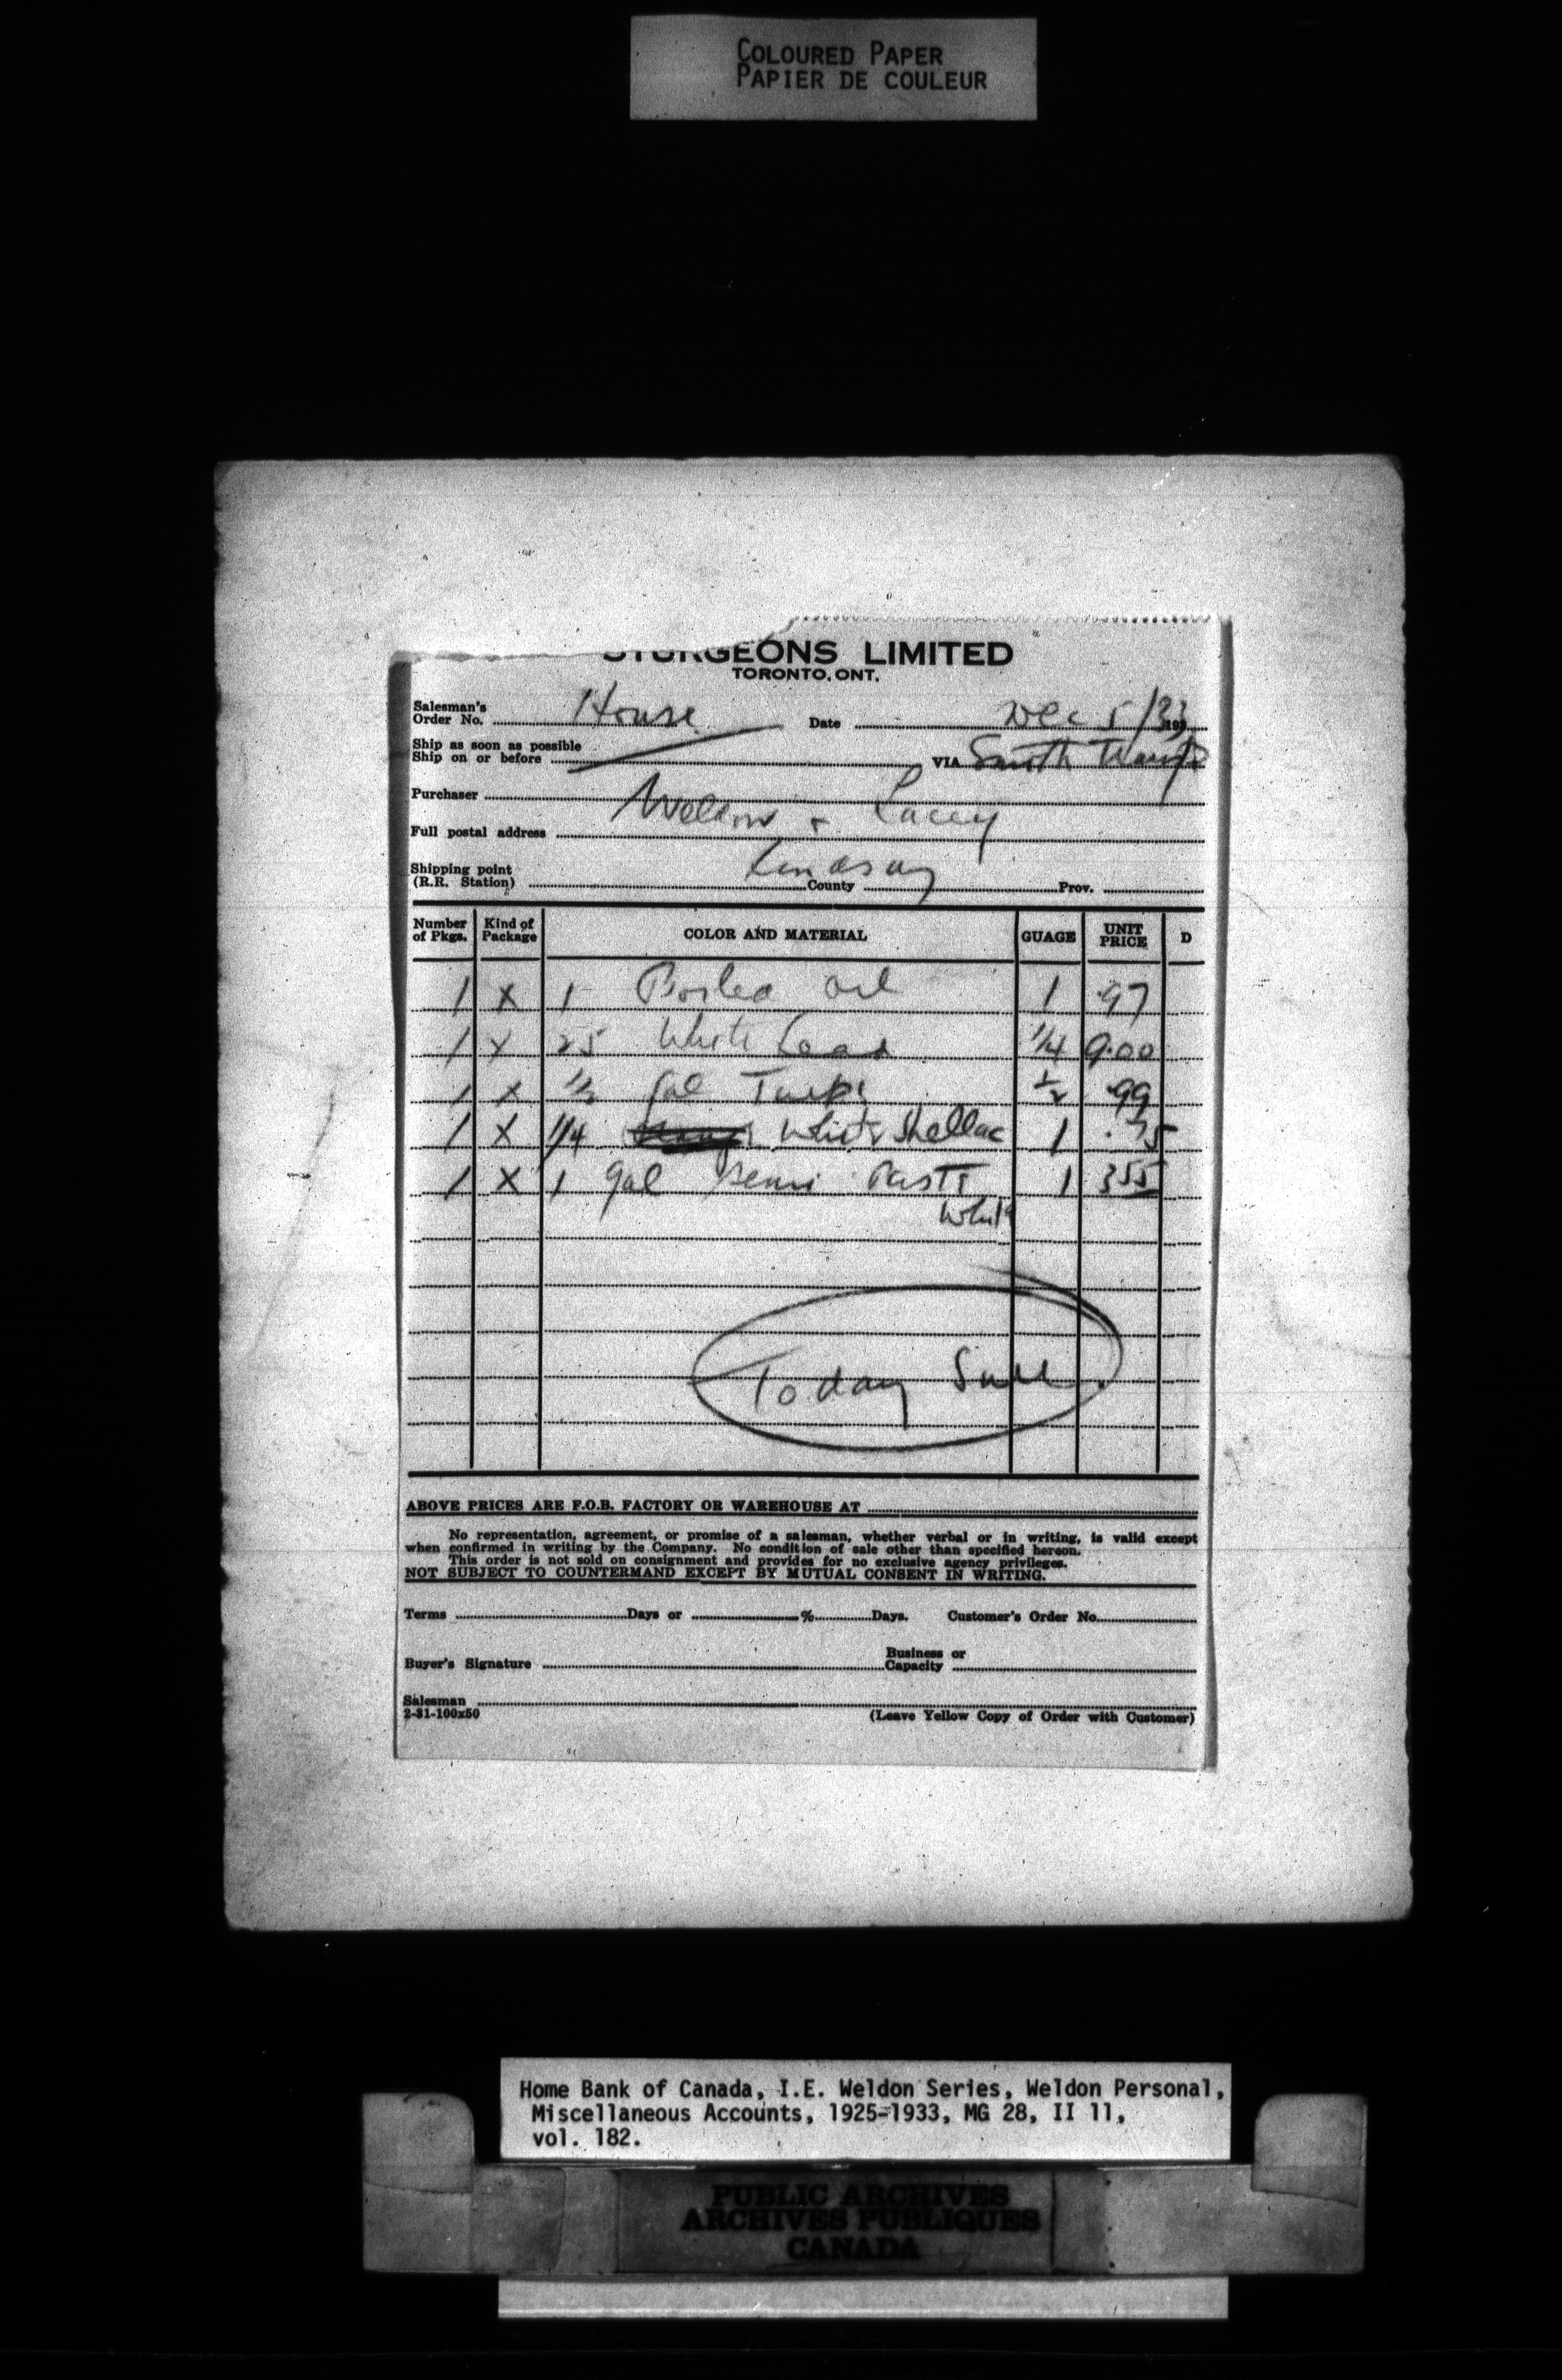 COLOURED PAPER
PAPIER DE COULEUR
STURGEONS LIMITED
TORONTO, ONT.
Salesman's
Order No. House Date Dec 5/33 193
Ship as soon as possible
Ship on or before VIA Smith Transp
Purchaser Weldon + Lacey
Full postal address
Lindsay
Shipping point
(R.R. Station) County Prov.
Number of Pkgs. Kind of Package COLOR AND MATERIAL GUAGE UNIT PRICE D
1 X 1 Boiled Oil 1 .97
1 X 25 White Lead 1/4 9.00
1 X 1/2 Gal Turps 1/2 .99
1 X 1/4 White Shellac 1 .75
1 X 1 gal Semi Paste 1 355
White
Today Sure
ABOVE PRICES ARE F.O.B. FACTORY OR WAREHOUSE AT
No representation, agreement, or promise of a salesman, whether verbal or in writing, is valid except
when confirmed in writing by the Company. No condition of sale other than specified hereon.
This order is not sold on consignment and provides for no exclusive agency privileges.
NOT SUBJECT TO COUNTERMAND EXCEPT BY MUTUAL CONSENT IN WRITING.
Terms Days or % Days. Customer's Order No.
Buyer's Signature Business or Capacity
Salesman
2-31-100x50 (Leave Yellow Copy of Order with Customer)
Home Bank of Canada, I.E. Weldon Series, Weldon Personal,
Miscellaneous Accounts, 1925-1933, MG 28, II 11,
vol. 182.
PUBLIC ARCHIVES
ARCHIVES PUBLIQUES
CANADA